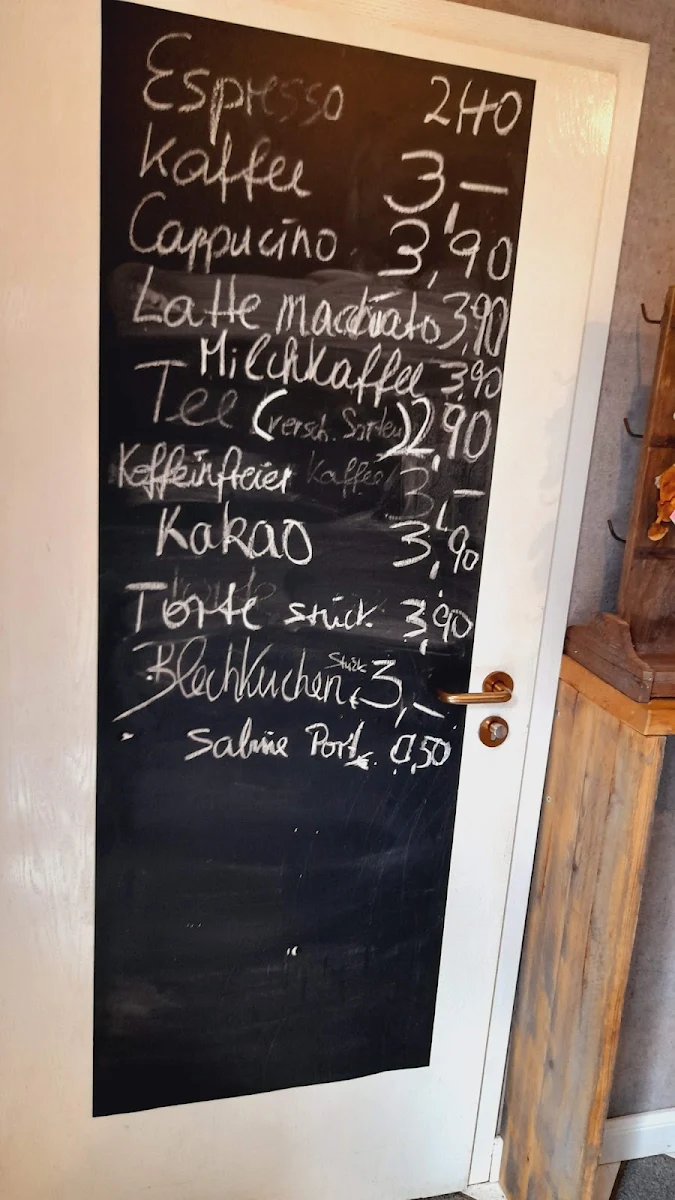 Espresso 240
Kaffee 3,—
Cappucino 3,90
Latte macchiato 3,90
Milchkaffee 3,90
Tee (versch. Sorten) 2,90
Koffeinfreier Kaffee 3,—
Kakao 3,90
Torte Stück 3,90
Blechkuchen Stück 3,—
Sahne Port. 0,50